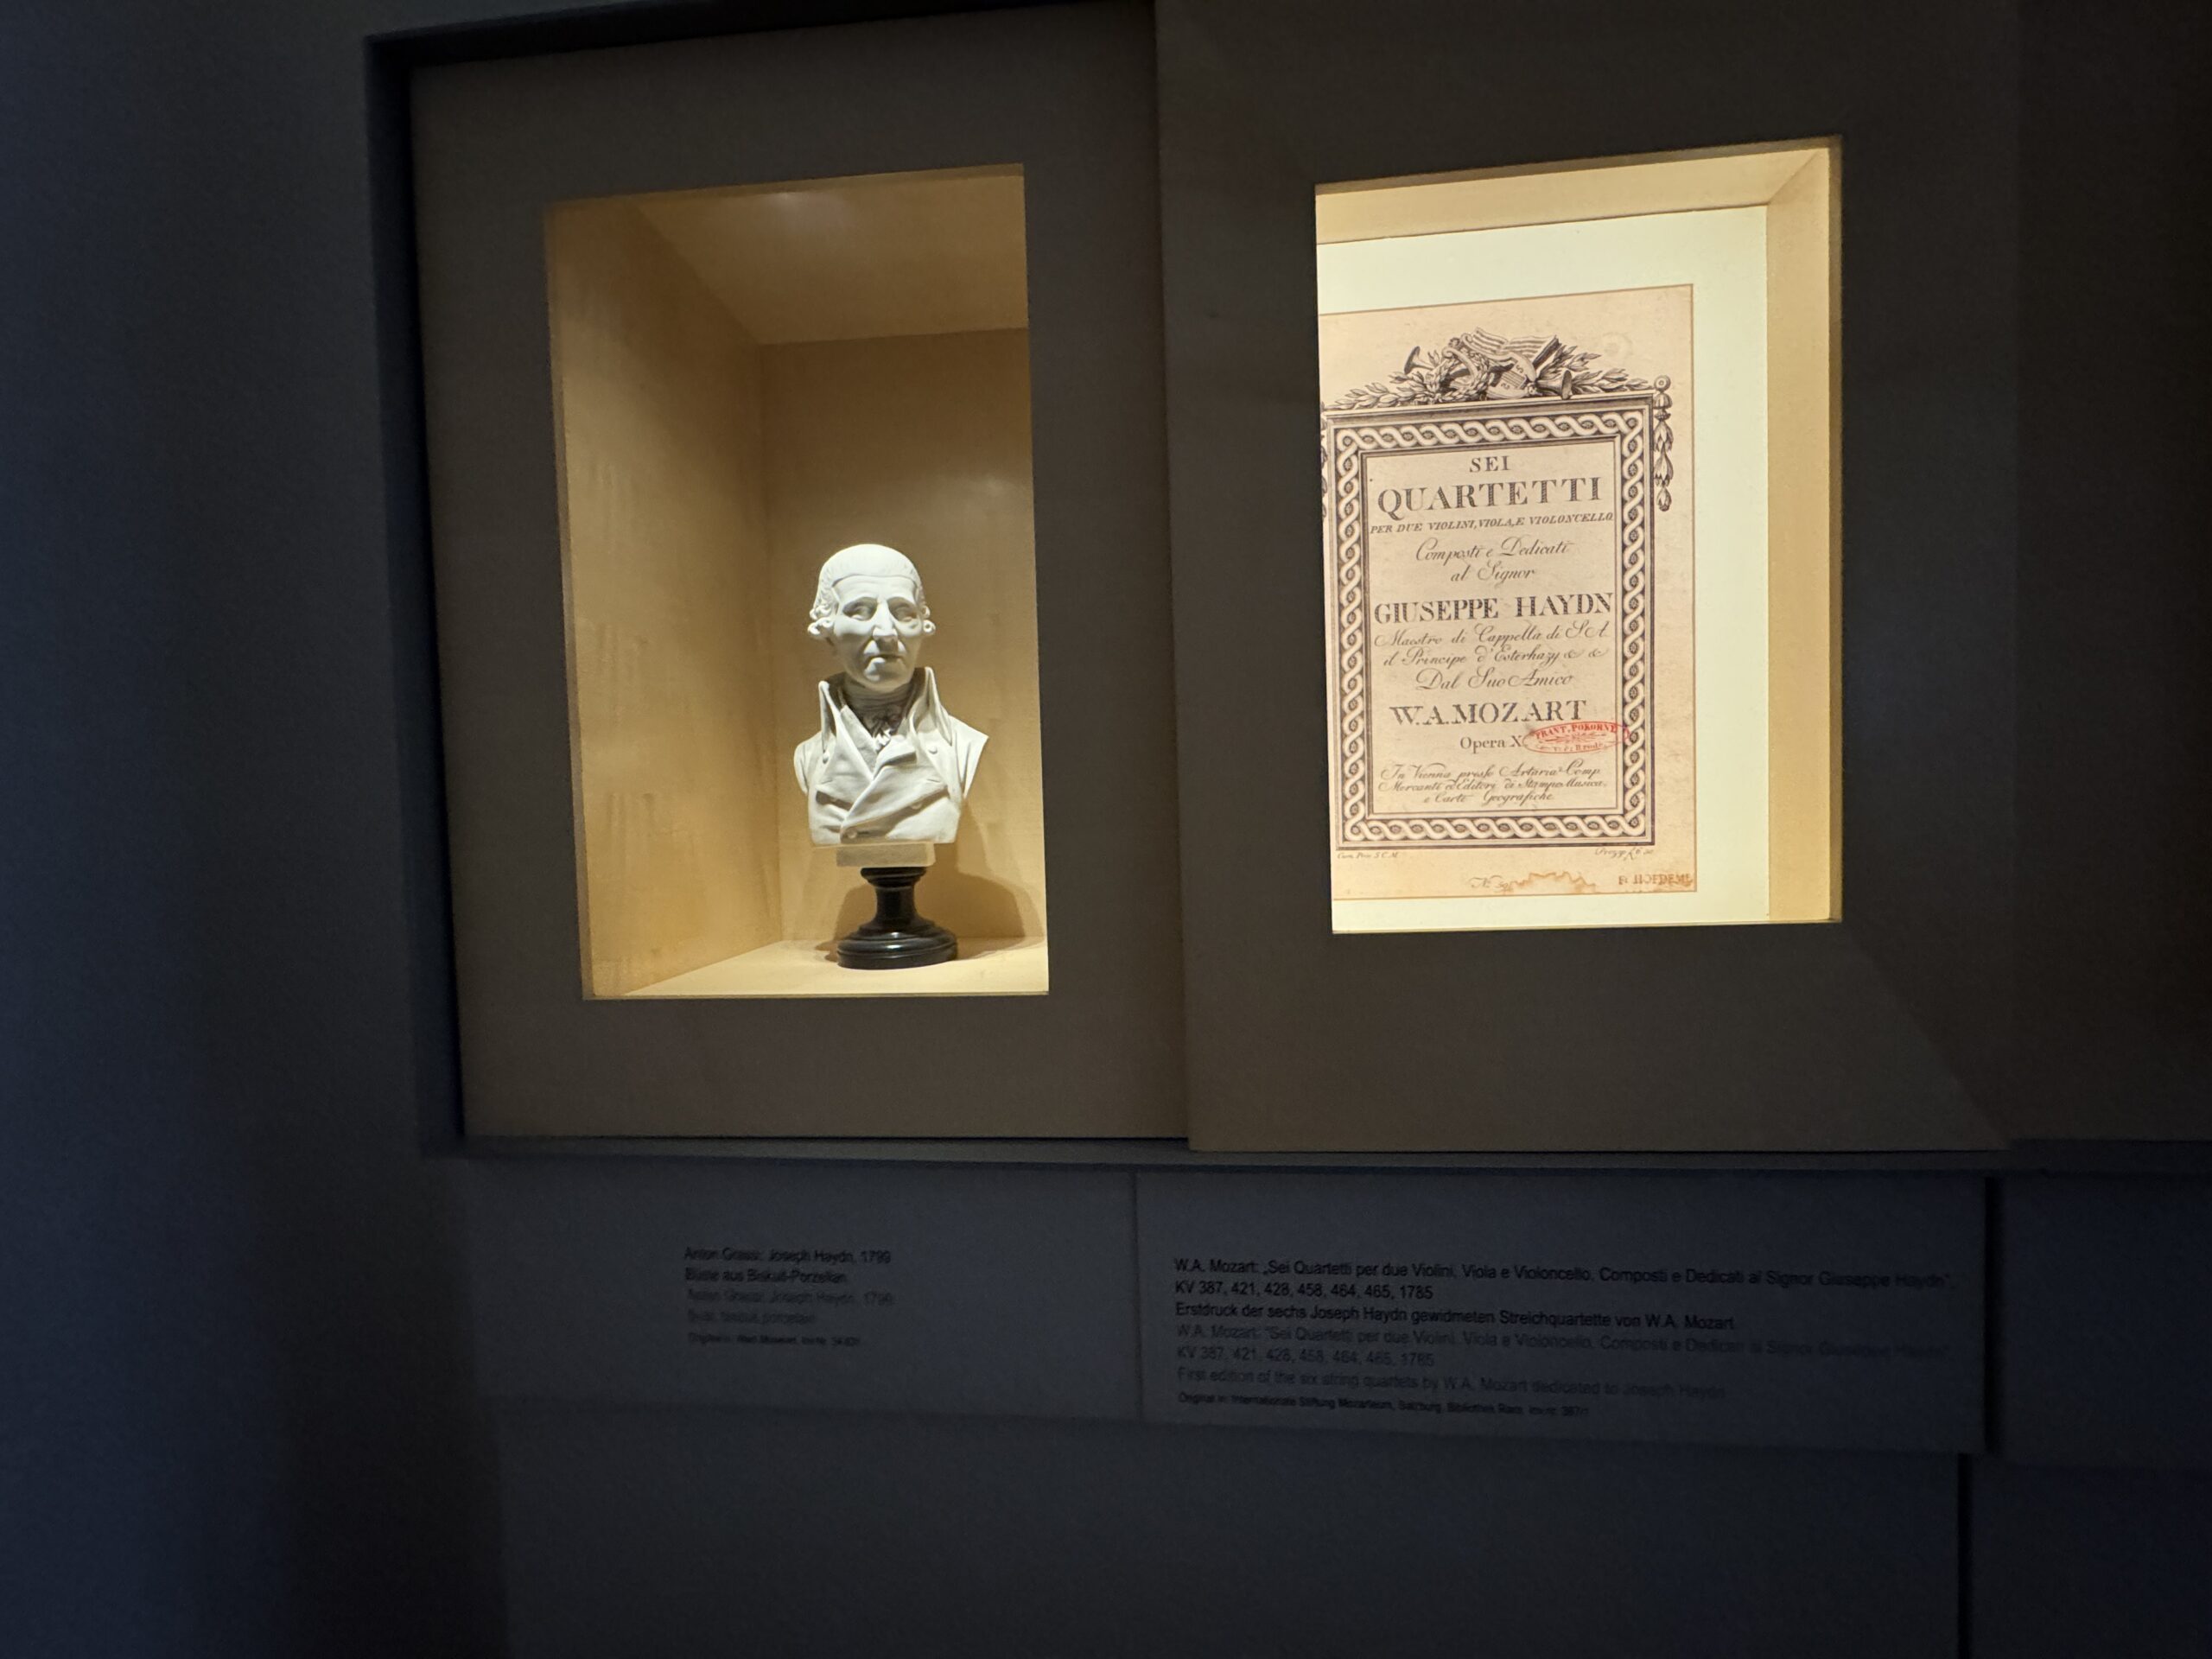 SEI
QUARTETTI
PER DUE VIOLINI, VIOLA, E VIOLONCELLO
Composti e Dedicati
al Signor
GIUSEPPE HAYDN
Maestro di Cappella di S.A.
il Principe d'Esterhazy &c &c
Dal Suo Amico
W.A.MOZART
Opera X
FRANT. POKORNY
In Vienna presso Artaria Comp.
Mercanti ed Editori di Stampe Musica,
e Carte Geografiche.
Cum Priv. S.C.M.
Anton Grassi: Joseph Haydn, 1799
Büste aus Biskuit-Porzellan
Anton Grassi: Joseph Haydn, 1799
Bust, bisque porcelain
Original in: Wien Museum,
W.A. Mozart: „Sei Quartetti per due Violini, Viola e Violoncello, Composti e Dedicati al Signor Giuseppe Haydn“,
KV 387, 421, 428, 458, 464, 465, 1785
Erstdruck der sechs Joseph Haydn gewidmeten Streichquartette von W.A. Mozart
W.A. Mozart: "Sei Quartetti per due Violini, Viola e Violoncello, Composti e Dedicati al Signor Giuseppe Haydn",
KV 387, 421, 428, 458, 464, 465, 1785
First edition of the six string quartets by W.A. Mozart dedicated to Joseph Haydn
Original in: Internationale Stiftung Mozarteum, Salzburg, Bibliothek